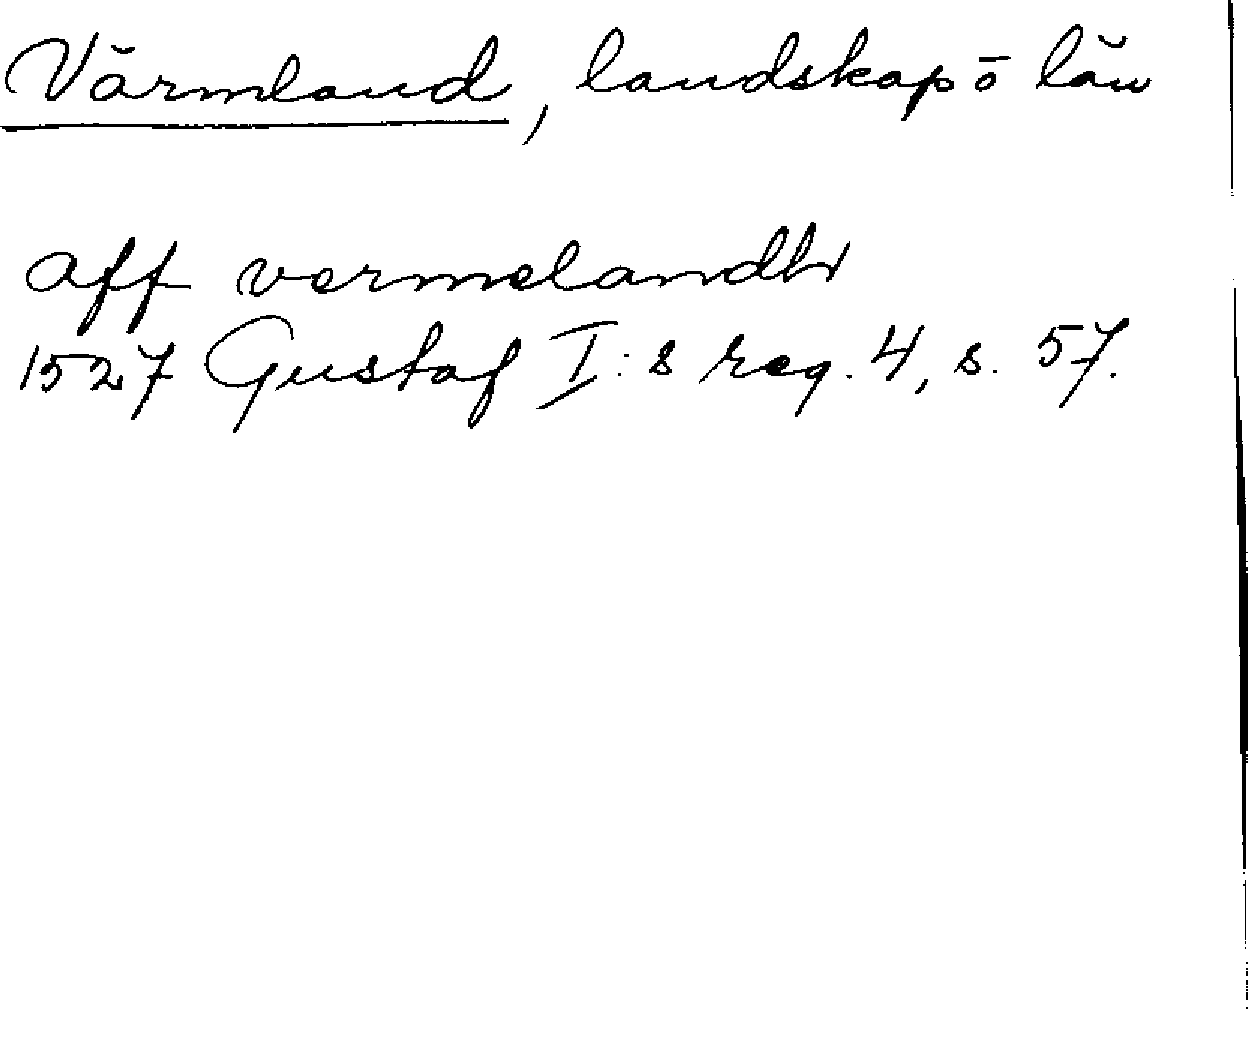 Värmland, landskap o län
aff vermelandh
1527 Gustaf I:s reg. 4, s. 57.